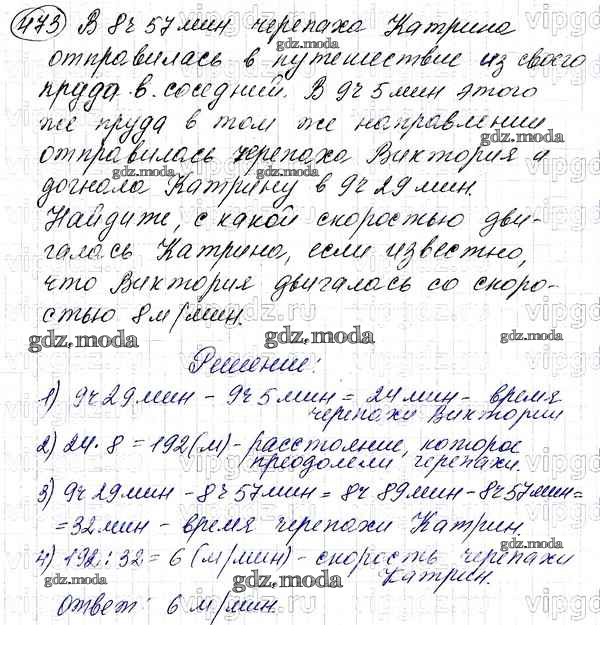 473 В 8г 57мин черепаха Катрина
отправилась в путешествие из своего
пруда в соседний. В 9г 5мин этого
же пруда в том же направлении
отправилась черепаха Виктория и
догнала Катрину в 9г 29мин.
Найдите, с какой скоростью дви-
галась Катрина, если известно,
что Виктория двигалась со скоро-
стью 8м/мин.
gdz.moda gdz.moda gdz.moda
Решение:
1) 9г 29мин - 9г 5мин = 24мин - время
черепахи Виктории
2) 24 · 8 = 192(м) - расстояние, которое
преодолели черепахи.
3) 9г 29мин - 8г 57мин = 8г 89мин - 8г 57мин =
= 32мин - время черепахи Катрин.
4) 192 : 32 = 6 (м/мин) - скорость черепахи
Катрин.
gdz.moda gdz.moda gdz.moda
Ответ: 6 м/мин.